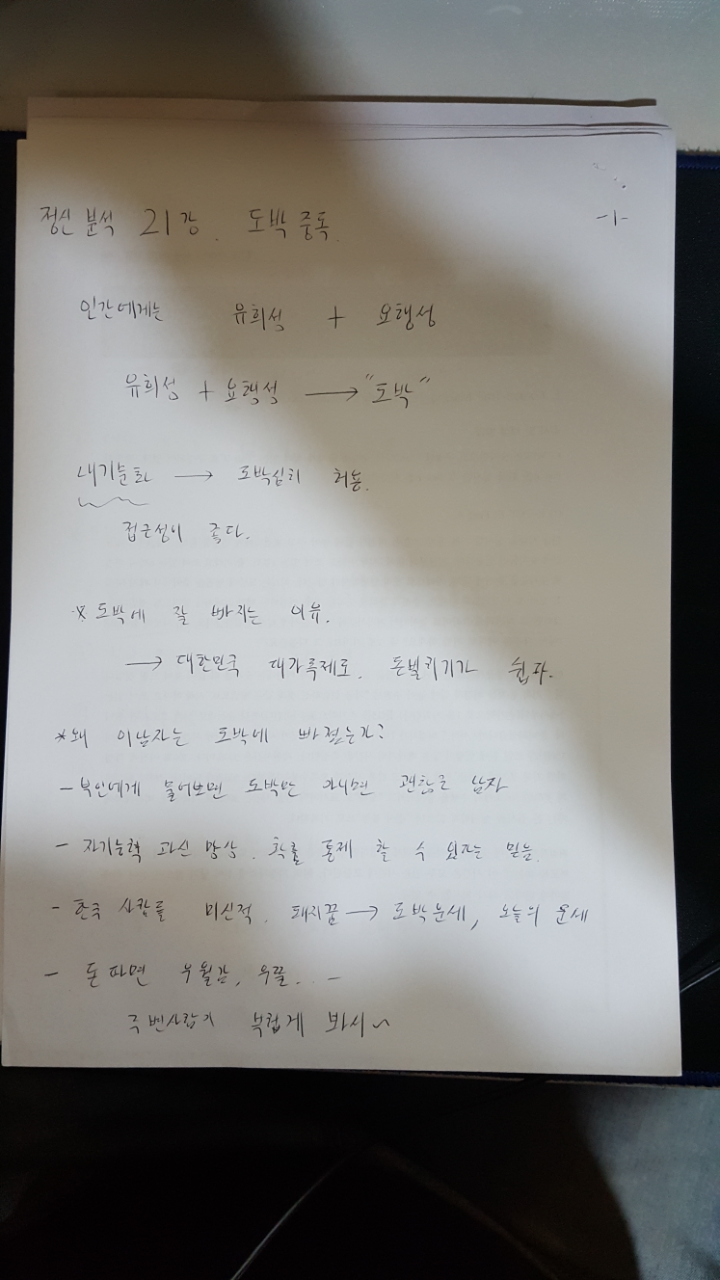 정신분석 21강. 도박중독.
-1-
인간에게는 유희성 + 요행성
유희성 + 요행성 → "도박"
내기문화 → 도박심리 허용.
접근성이 좋다.
※ 도박에 잘 빠지는 이유.
→ 대한민국 대가족제도. 돈빌리기가 쉽다.
*왜 이남자는 도박에 빠졌는가?
- 부인에게 물어보면 도박만 아니면 괜찮은 남자
- 자기능력 과신 망상. 확률 통제 할 수 있다는 믿음.
- 한국 사람들 미신적. 돼지꿈 → 도박운세, 오늘의 운세
- 돈 따면 우월감, 우쭐. . -
주변사람이 부럽게 봐서~